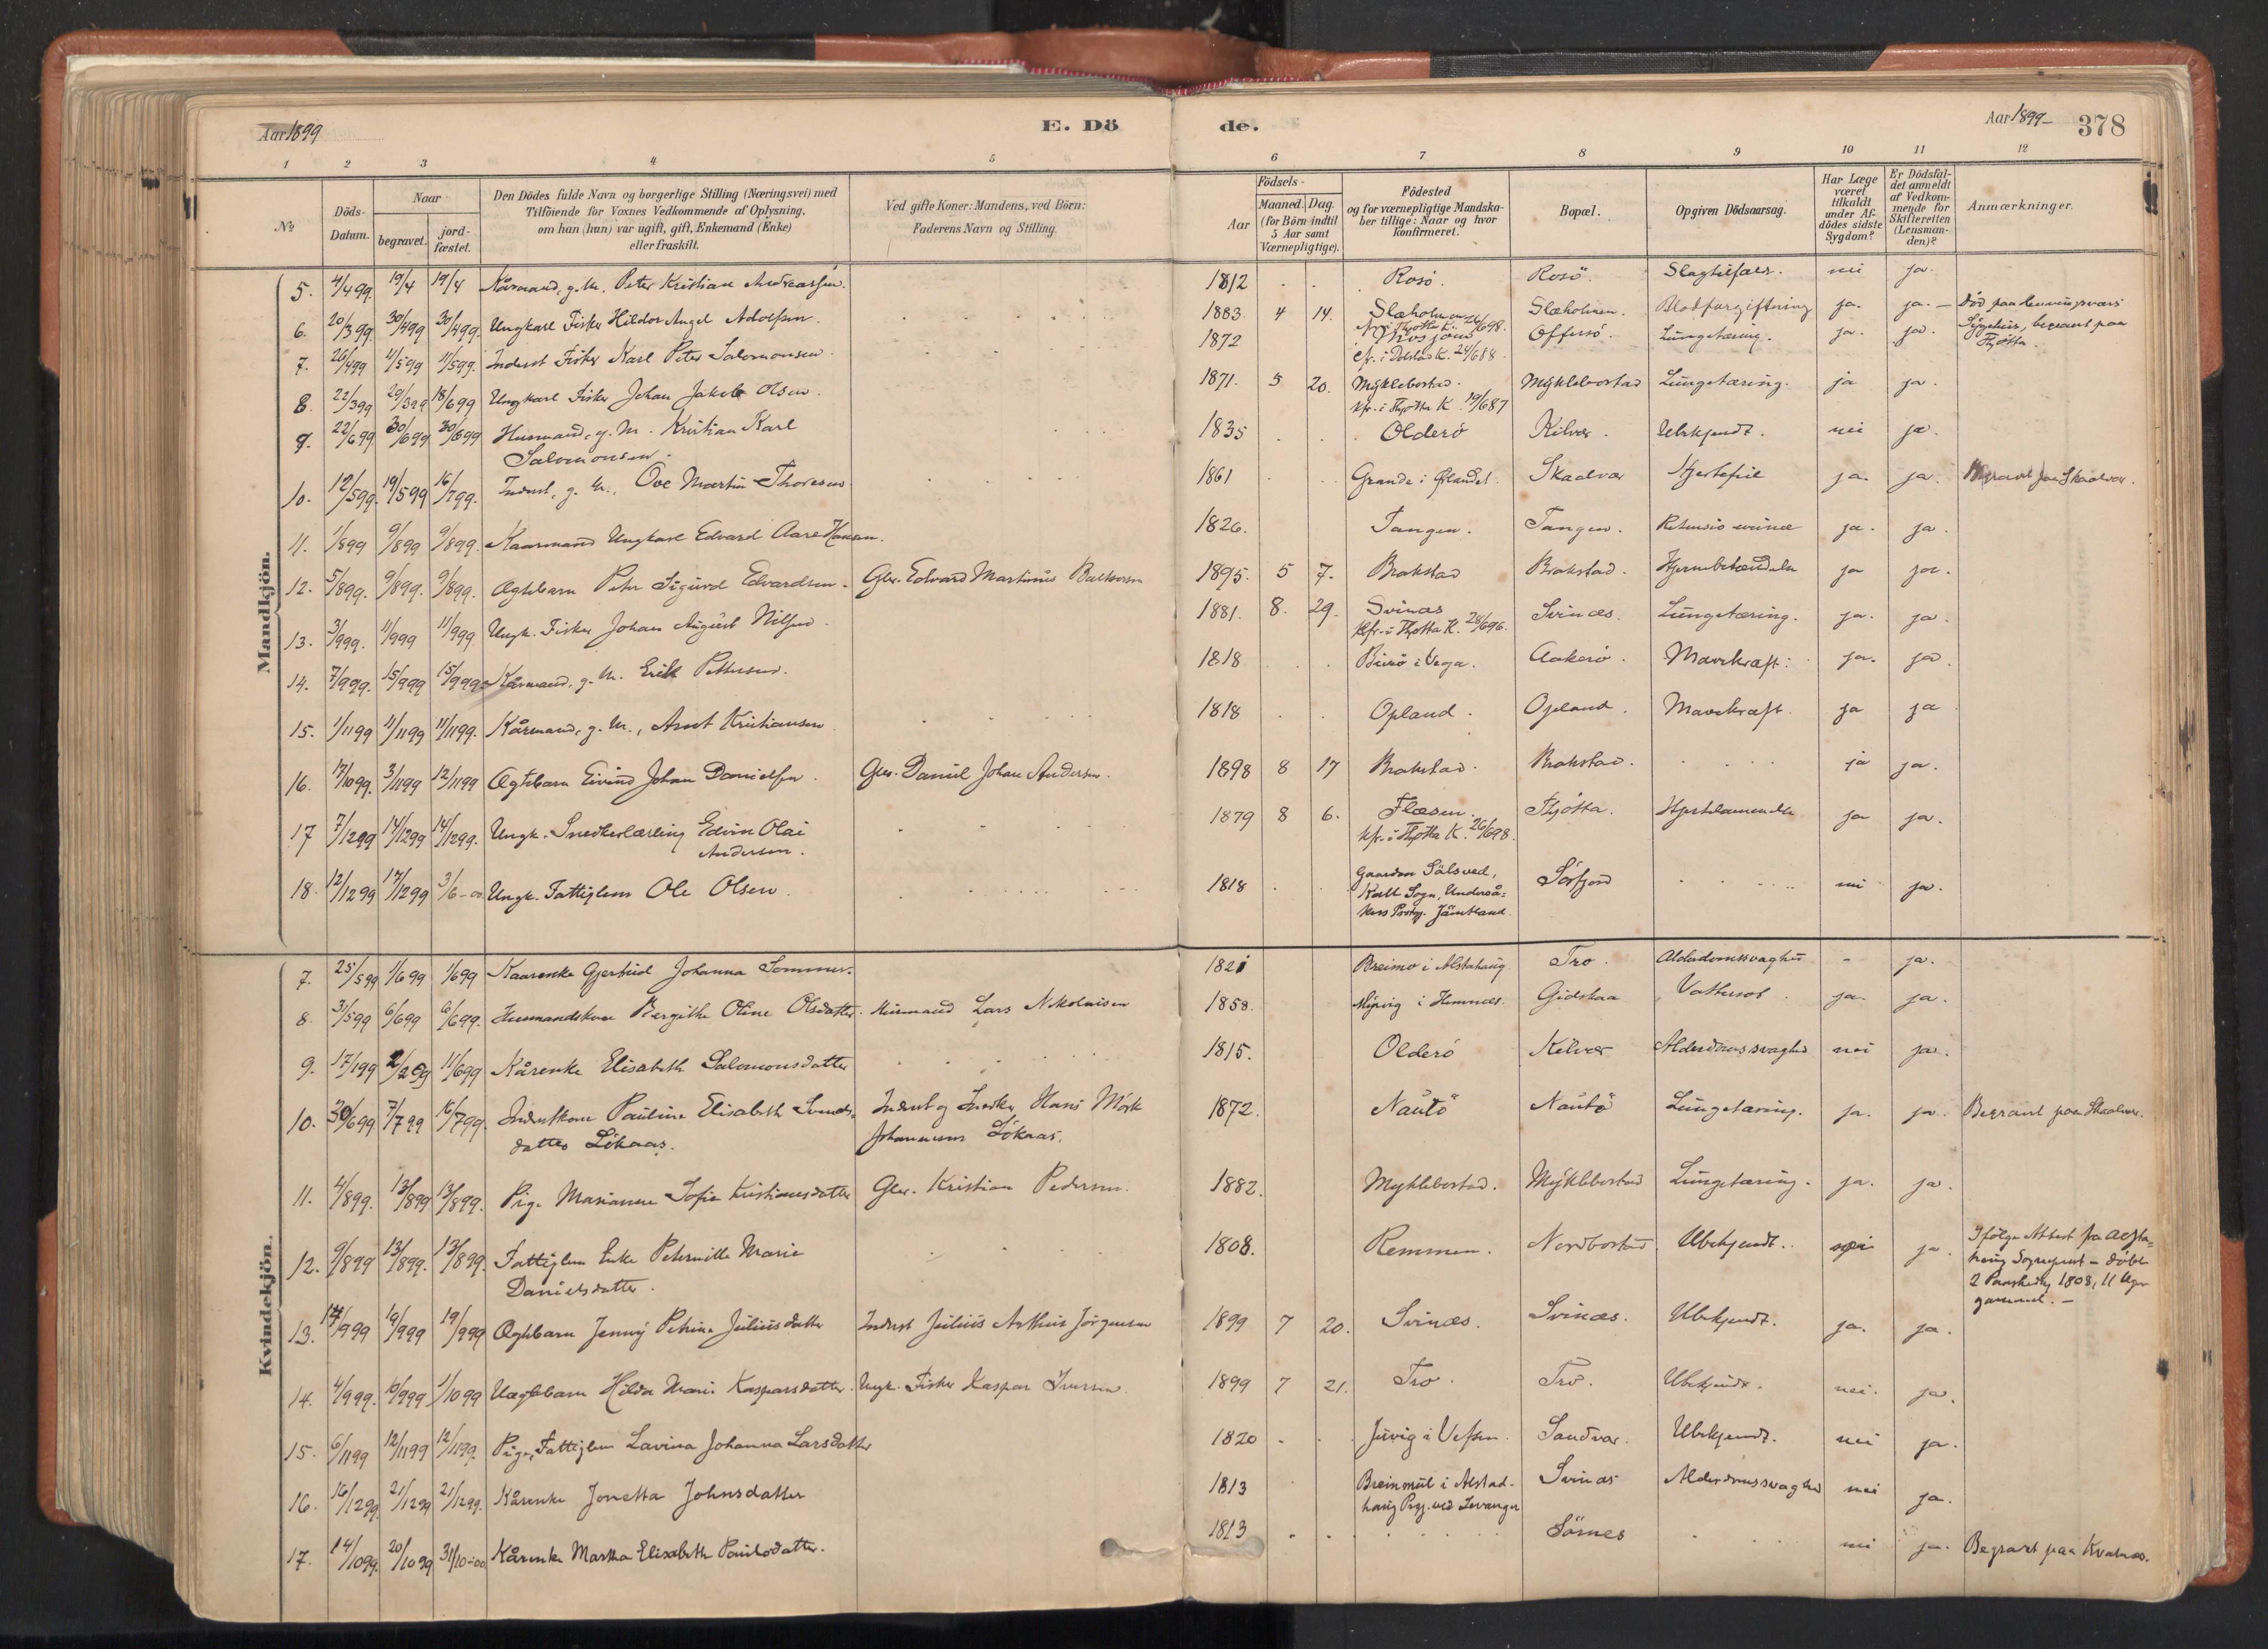 Aar 1899
E. Döde.
Aar 1899
378
1 2 3 4 5 6 7 8 9 10 11 12
№
Döds-Datum.
Naar
begravet.
jordfæstet.
Den Dödes fulde Navn og borgerlige Stilling (Næringsvei) med
Tilföiende for Voxnes Vedkommende af Oplysning,
om han (hun) var ugift, gift, Enkemand (Enke)
eller fraskilt.
Ved gifte Koner: Mandens, ved Börn:
Faderens Navn og Stilling.
Födsels-
Aar
Maaned. Dag.
(for Börn indtil
5 Aar samt
Værnepligtige).
Födested
og for værnepligtige Mandska-
ber tillige: Naar og hvor
konfirmeret.
Bopæl.
Opgiven Dödsaarsag.
Har Læge
været
tilkaldt
under Af-
dödes sidste
Sygdom?
Er Dödsfal-
det anmeldt
af Vedkom-
mende for
Skifteretten
(Lensman-
den)?
Anmærkninger.
Mandkjön.
5. 4/499. 19/4 19/4 Kårmand, g. M. Peter Kristian Andreassen. 1812 Rosö. Rosö. Slagtilfælde. nei ja.
6. 20/399. 30/499 30/499. Ungkarl Fisker Hildor Angel Adolfsen. 1883 4 14. Slæholmen Slæholmen. Blodforgiftning ja. ja. – Död paa Henningsvær
Sygehus, begravet paa
Thjøtta.
7. 26/499 11/599 11/599. Inderst Fisker Karl Peter Salomonsen 1872 Mosjøen Offersö. Lungetæring. ja. ja.
cfr. i Dolstad K. 24/688.
8. 22/399 29/399 18/699 Ungkarl Fisker Johan Jakob Olsen. 1871. 5 20. Myklebostad. Myklebostad Lungetæring. ja ja.
kfr. i Thjøtta K. 19/687
9. 22/699 30/699 30/699 Husmand, g. M. Kristian Karl 1835 Olderö Kilvær. Ubekjendt. nei ja.
Salomonsen.
10. 12/599. 19/599 16/799. Inderst, g. M., Ove Martin Thoresen 1861 Grande i Ørlandet. Skaalvær Hjertefeil ja. ja. Begravet paa Skaalvær.
11. 1/899 9/899 9/899. Kaarmand Ungkarl Edvard Aare Hansen. 1826. Tangen. Tangen. Retensio urinæ ja. ja.
12. 5/899. 9/899. 9/899. Ægtebarn Peter Sigurd Edvardsen. Gbr. Edvard Martinus Baltsersen 1895. 5 7. Brakstad Brakstad. Hjernebetændelse ja ja.
13. 3/999. 11/999 11/999 Ungk. Fisker Johan August Nilsen. 1881. 8. 29. Svinæs Svinæs. Lungetæring. ja. ja.
kfr. i Thjøtta K. 28/696.
14. 7/999. 15/999 15/999 Kårmand, g. M. Erik Pettersen. 1818 Burö i Vega. Aakerö. Mavekræft. ja. ja.
15. 1/1199 11/1199 11/1199. Kårmand, g. M., Arnt Kristiansen 1818 Opland. Opland. Mavekræft. ja ja
16. 17/1099. 3/1199 12/1199 Ægtebarn Eivind Johan Danielsen. Gbr. Daniel Johan Andersen. 1898 8 17 Brakstad. Brakstad. ja ja.
17 7/1299 14/1299 14/1299. Ungk. Snedkerlærling Edvin Olai 1879 8 6. Flæsen. Thjötta. Hjertelammelse ja ja.
Andersen. kfr. i Thjøtta K. 26/698.
18. 12/1299 17/1299 3/6-00 Ungk. Fattiglem Ole Olsen. 1818 Gaarden Sälsved, Sörfjord nei ja.
Kall Sogn, Underså-
kers Prstgj. Jämtland.
Kvindekjön.
7. 25/599 1/699 1/699 Kaarenke Gjertrud Johanna Sommer. 1821 Breimo i Alstahaug Tro. Alderdomssvaghed – ja.
8. 31/599 6/699 6/699. Husmandskone Bergithe Oline Olsdatter. Husmand Lars Nikolaisen 1858. i Hemnæs. Gidskaa Vattersot. ja. ja.
9. 17/199 2/299 11/699 Kårenke Elisabeth Salomonsdatter 1815. Olderö Kilvær Alderdomssvaghed nei ja.
10. 30/699 7/799 16/799. Inderstkone Pauline Elisabeth Svends- Inderst og Snedker Hans Mörk 1872. Nautö Nautö Lungetæring. ja. ja. Begravet paa Skaalvær.
datter Lökaas. Johannesen Lökaas.
11. 4/899. 13/899 13/899. Pige Marianne Sofie Kristiansdatter Gbr. Kristian Pedersen. 1882. Myklebostad. Myklebostad Lungetæring. ja. ja.
12. 9/899 13/899. 13/899. Fattiglem Enke Peternille Marie 1808. Remmen. Nordbostad. Ubekjendt. nei ja. Ifölge Attest fra Alsta-
Danielsdatter. haug Sogneprest – døbt
2 Paaskedag 1808, 11 Uger
gammel. –
13. 14/999 19/999 19/999 Ægtebarn Jenny Petrine Juliusdatter Inderst Julius Arthur Jörgensen 1899 7 20. Svinæs. Svinæs. Ubekjendt. ja. ja.
14. 4/999. 10/999 1/1099 Uægtebarn Hilda Marie Kasparsdatter. Ungk. Fisker Kaspar Iversen. 1899 7 21. Tro. Tro. Ubekjendt. nei. ja.
15. 6/1199 12/1199 12/1199. Pige, Fattiglem Lavina Johanna Larsdatter 1820 Juvig i Vefsen. Sandvær. Ubekjendt. nei ja.
16. 16/1299. 21/1299 21/1299. Kårenke Jonetta Johnsdatter 1813 i Alstad- Svinæs Alderdomssvaghed nei ja.
haug Prgj. ved Levanger
17. 14/1099. 20/1099 31/10-00 Kårenke Martha Elisabeth Paulsdatter. 1813 Sörnes nei ja. Begravet paa Kvalnæs.